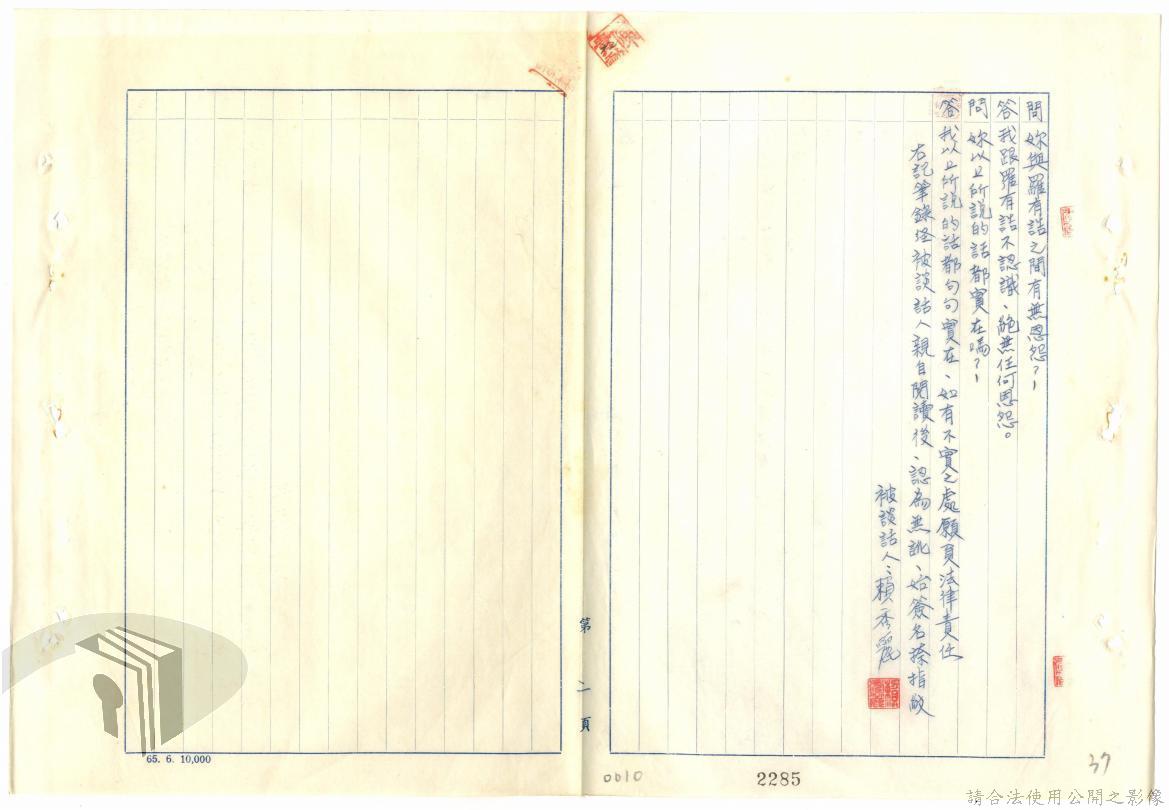 問 妳與羅有誥之間有無恩怨?
答 我跟羅有誥不認識、絕無任何恩怨。
問 妳以上所說的話都實在嗎?
答 我以上所說的話都句句實在、如有不實之處願負法律責任
右記筆錄經被談話人親自閱讀後、認為無訛、始簽名捺指
被談話人:賴秀麗
第二頁
65. 6. 10,000
0010
2285
37
請合法使用公開之影像